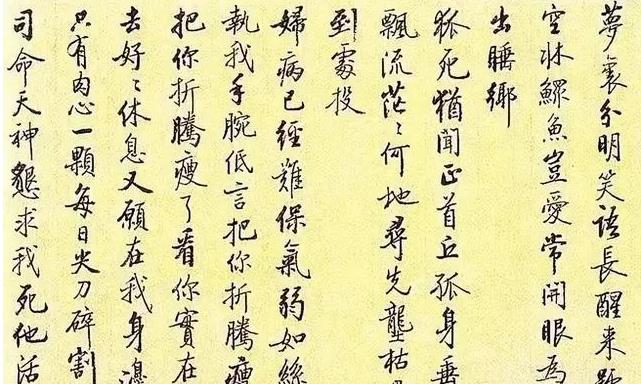 夢裏分明笑語長醒來號
空牀鰥魚豈愛常開眼為
出睡鄉
狐死猶聞正首丘孤身垂
飄流茫々何地尋先壟枯
到處投
婦病已經難保氣弱如絲
執我手腕低言把你折騰瘦
把你折騰瘦了看你實在
去好々休息又願在我身邊
只有肉心一顆每日尖刀碎割
司命天神懇求我死他活